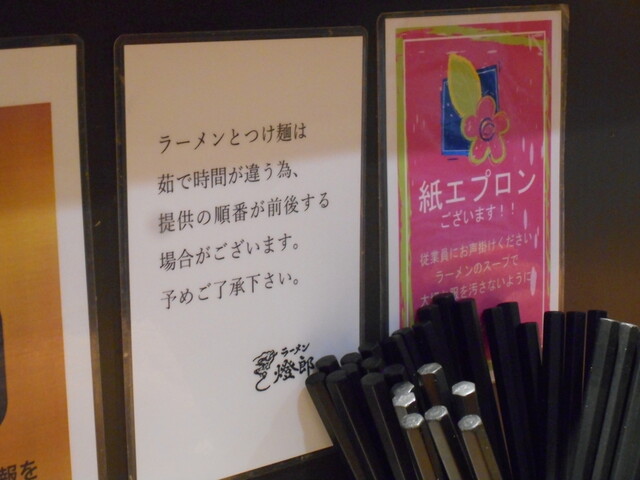 ラーメンとつけ麺は
茹で時間が違う為、
提供の順番が前後する
場合がございます。
予めご了承下さい。
ラーメン
燈郎
紙エプロン
ございます！！
従業員にお声掛けください
ラーメンのスープで
服を汚さないように
報を